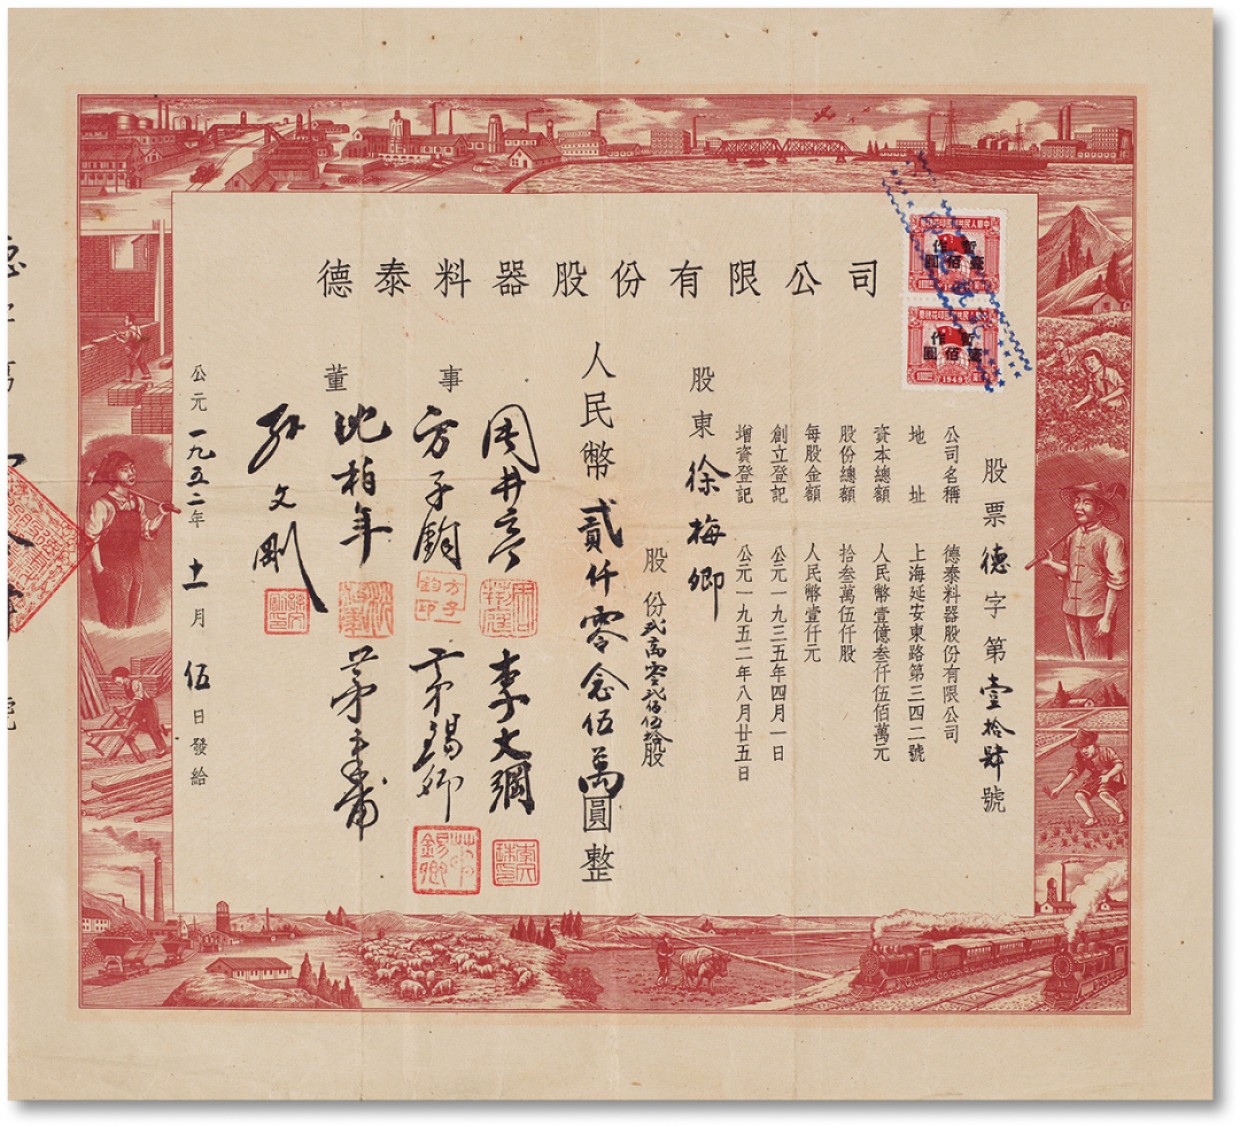 德泰料器股份有限公司
股票德字第壹拾肆號
公司名稱 德泰料器股份有限公司
地址 上海延安東路第三四二號
資本總額 人民幣壹億叁仟伍佰萬元
股份總額 拾叁萬伍仟股
每股金額 人民幣壹仟元
創立登記 公元一九三五年四月一日
增資登記 公元一九五二年八月廿五日
股東徐梅卿
股份弍萬零弍佰伍拾股
人民幣貳仟零念伍萬圓整
董事
李文綱
方子鈞
茅錫卿
沈柏年
孫文剛
公元一九五二年十一月伍日發給
中華人民共和國印花稅票
暫作
壹佰圓
1949
暫作
壹佰圓
1949